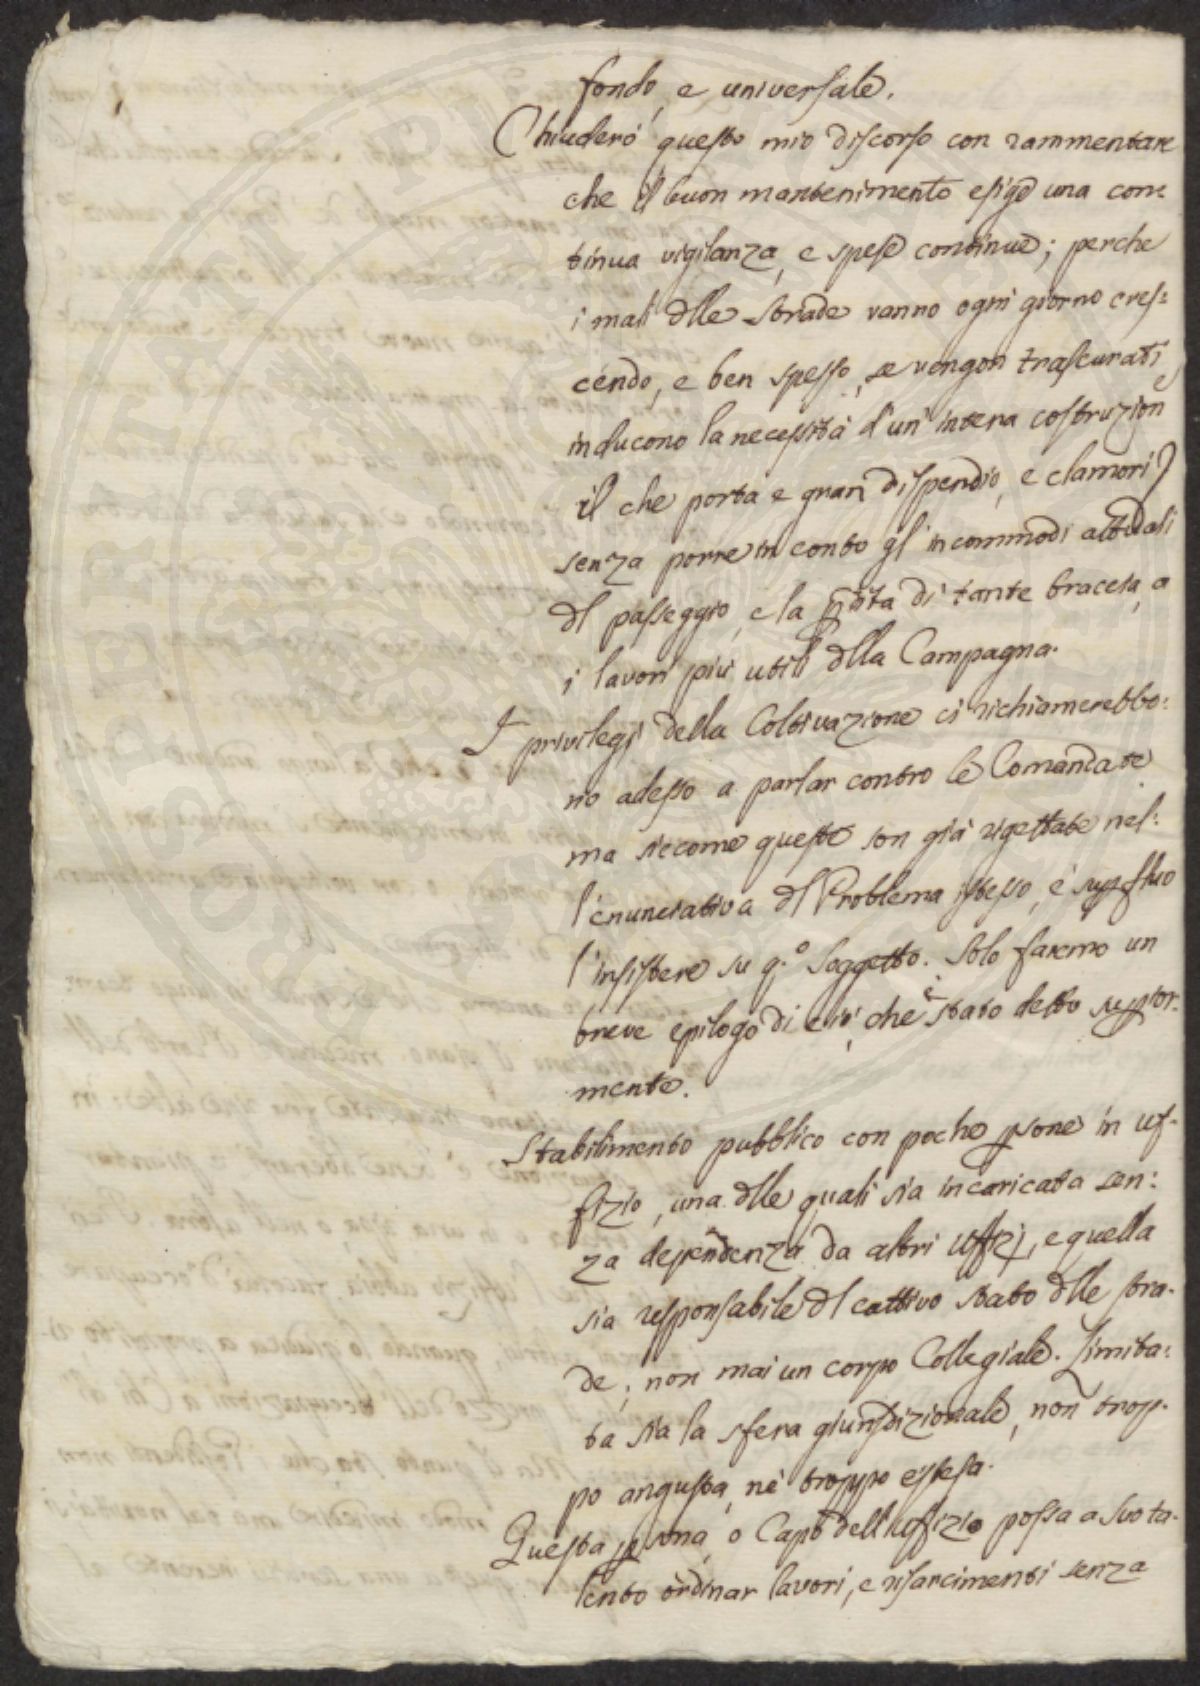 fondo, e universale.
Chiuderó questo mio discorso con rammentare
che il buon mantenimento esige una con:
tinua vigilanza, e spese continue; perche
i mali dlle Strade vanno ogni giorno cres:
cendo, e ben spesso, se vengon trascurati,
inducono la necessità d'un' intera costruzione
il che porta e gran dispendio, e clamori,
senza porre in conto gl' incommodi attuali
dl passeggio, e la pdita di tante braccia, a
i lavori più utili dlla Campagna.
I privilegj della Coltivazione ci richiamerebbo:
no adesso a parlar contro le Comandate
ma siccome queste son già rigettate nel:
l'enunciativa dl Problema istesso, è supfluo
l'insistere su q.º Soggetto. Solo faremo un
breve epilogo di ciò, che è stato detto supior-
mente.
Stabilimento pubblico con poche psone in uf-
fizio, una dlle quali sia incaricata sen:
za dependenza da altri Uffizj, e quella
sia responsabile dl cattivo stato dlle stra-
de; non mai un corpo Collegiale. Limita:
ta sia la sfera giurisdizionale, non trop-
po angusta, nè troppo estesa.
Questa psona, o Capo dell'uffizio possa a suo ta-
lento ordinar lavori, e risarcimenti senza